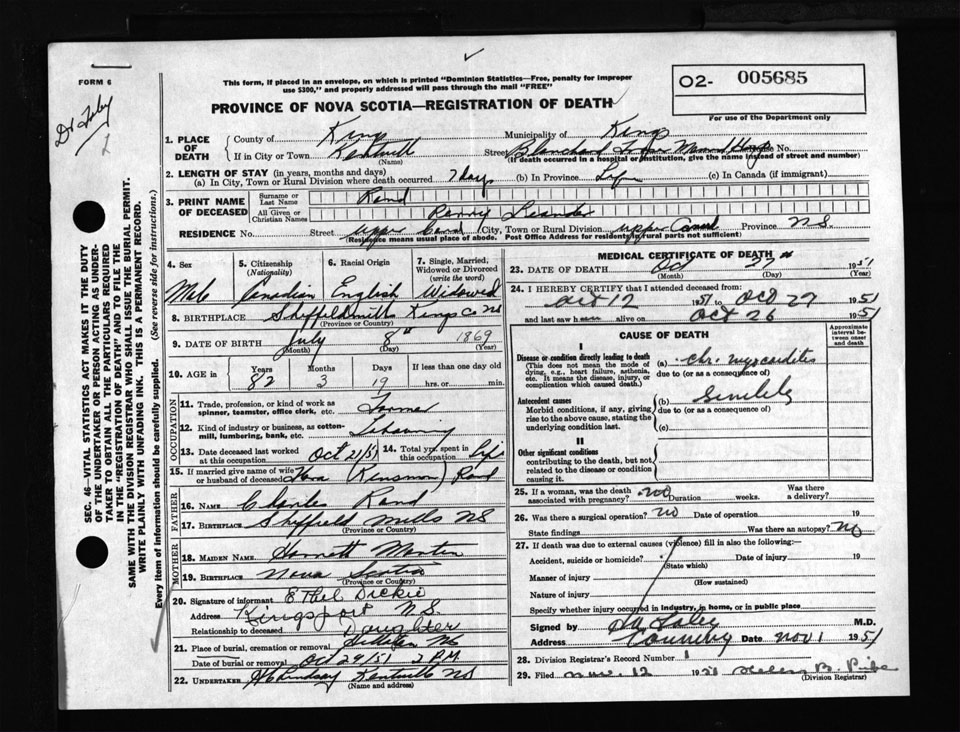 FORM 6
Dr Foley
1
This form, if placed in an envelope, on which is printed "Dominion Statistics—Free, penalty for improper
use $300," and properly addressed will pass through the mail "FREE"
PROVINCE OF NOVA SCOTIA—REGISTRATION OF DEATH
O2- 005685
For use of the Department only
1. PLACE OF DEATH
County of Kings Municipality of Kings
If in City or Town Kentville (Name) Street Blanchard House No.
(If death occurred in a hospital or institution, give the name instead of street and number)
2. LENGTH OF STAY (in years, months and days)
(a) In City, Town or Rural Division where death occurred 7 days (b) In Province Life (c) In Canada (if immigrant)
3. PRINT NAME OF DECEASED
Surname or Last Name Rand
All Given or Christian Names Leander
RESIDENCE No. Street Upper Canard (City, Town or Rural Division Upper Canard Province N.S.
(Residence means usual place of abode. Post Office Address for residents in rural parts not sufficient)
4. Sex Male
5. Citizenship (Nationality) Canadian
6. Racial Origin English
7. Single, Married, Widowed or Divorced (write the word) Widowed
8. BIRTHPLACE Sheffield Mills Kings Co NS
(Province or Country)
9. DATE OF BIRTH July (Month) 8th (Day) 1869 (Year)
10. AGE in Years 82 Months 3 Days 19 If less than one day old hrs. or min.
OCCUPATION
11. Trade, profession, or kind of work as spinner, teamster, office clerk, etc. Farmer
12. Kind of industry or business, as cotton-mill, lumbering, bank, etc.
13. Date deceased last worked at this occupation Oct 21/51 14. Total yrs. spent in this occupation life
15. If married give name of wife or husband of deceased (Kinsman) Rand
FATHER
16. NAME Charles Rand
17. BIRTHPLACE Sheffield Mills NS
(Province or Country)
MOTHER
18. MAIDEN NAME
19. BIRTHPLACE Nova Scotia
(Province or Country)
20. Signature of informant Ethel Dickie
Address Kingsport N.S.
Relationship to deceased Daughter
21. Place of burial, cremation or removal
Date of burial or removal Oct 29/51 2 P.M.
22. UNDERTAKER Lindsay Kentville NS
(Name and address)
MEDICAL CERTIFICATE OF DEATH
23. DATE OF DEATH Oct (Month) 27 (Day) 1951 (Year)
24. I HEREBY CERTIFY that I attended deceased from
Oct 12 1951 to Oct 27 1951
and last saw h alive on Oct 26 1951
CAUSE OF DEATH
Approximate interval between onset and death
I
Disease or condition directly leading to death
(This does not mean the mode of dying, e.g., heart failure, asthenia, etc. It means the disease, injury, or complication which caused death.)
(a) Chr. myocarditis
due to (or as a consequence of)
Antecedent causes
Morbid conditions, if any, giving rise to the above cause, stating the underlying condition last.
(b) Senility
due to (or as a consequence of)
(c)
II
Other significant conditions
contributing to the death, but not related to the disease or condition causing it.
25. If a woman, was the death associated with pregnancy? no Duration weeks. Was there a delivery?
26. Was there a surgical operation? no Date of operation 19
State findings Was there an autopsy? No
27. If death was due to external causes (violence) fill in also the following:—
Accident, suicide or homicide? (State which) Date of injury 19
Manner of injury (How sustained)
Nature of injury
Specify whether injury occurred in industry, in home, or in public place
Signed by Foley M.D.
Address Date Nov 1 1951
28. Division Registrar's Record Number 1
29. Filed Nov. 12 1951 Helen B.
(Division Registrar)
SEC. 46—VITAL STATISTICS ACT MAKES IT THE DUTY
OF THE UNDERTAKER OR PERSON ACTING AS UNDER-
TAKER TO OBTAIN ALL THE PARTICULARS REQUIRED
IN THE "REGISTRATION OF DEATH" AND TO FILE THE
SAME WITH THE DIVISION REGISTRAR WHO SHALL ISSUE THE BURIAL PERMIT.
WRITE PLAINLY WITH UNFADING INK. THIS IS A PERMANENT RECORD.
Every item of information should be carefully supplied. (See reverse side for instructions.)